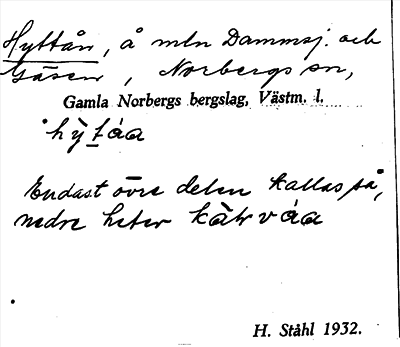 Hyttån, å mln Dammsj. och
Gåsen, Norbergs sn,
Gamla Norbergs bergslag, Västm. l.
hỳt̠áa
Endast övre delen kallas så,
nedre heter kàrváa
H. Ståhl 1932.